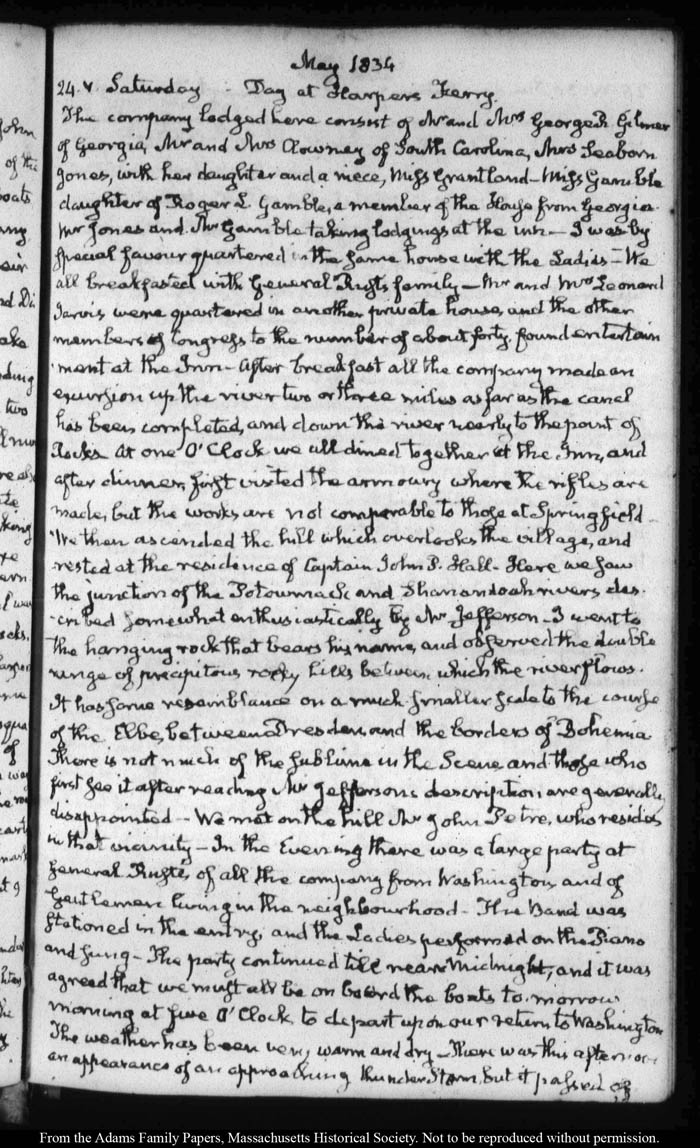 May 1834
24. V. Saturday - Day at Harpers Ferry.
The company lodged here consist of Mr and Mrs George R. Gilmer
of Georgia, Mr and Mrs Clowney of South Carolina, Mrs Seaborn
Jones, with her daughter and a niece, Miss Grantland - Miss Gamble
daughter of Roger L. Gamble, a member of the House from Georgia.
Mr Jones and Mr Gamble taking lodgings at the inn - I was by
special favour quartered in the same house with the Ladies - We
all breakfasted with General Rust's family - Mr and Mrs Leonard
Jarvis were quartered in another private house, and the other
members of Congress to the number of about forty, found entertain
ment at the Inn - After breakfast all the company made an
excursion up the river two or three miles as far as the canal
has been completed, and down the river nearly to the point of
Rocks. At one O'Clock we all dined together at the Inn, and
after dinner, first visited the armoury where the rifles are
made, but the works are not comparable to those at Springfield -
We then ascended the hill which overlooks the village, and
rested at the residence of Captain John P. Hall - Here we saw
the junction of the Potowmack and Shanandoah rivers des-
-cribed somewhat enthusiastically by Mr Jefferson - I went to
the hanging rock that bears his name, and observed the double
range of precipitous rocky hills between which the river flows.
It has some resemblance on a much smaller scale to the course
of the Elbe, between Dresden, and the borders of Bohemia
There is not much of the sublime in the Scene and those who
first see it after reading Mr Jefferson's description are generally
disappointed - We met on the hill Mr John Petre, who resides
in that vicinity - In the Evening there was a large party at
General Rust's, of all the company from Washington, and of
Gentlemen living in the neighbourhood - The Band was
stationed in the entry, and the Ladies performed on the Piano
and sung - The party continued till near Midnight, and it was
agreed that we must all be on board the boats to-morrow
morning at five O'Clock, to depart upon our return to Washington
The weather has been very warm and dry - There was this afternoon
an appearance of an approaching thunder Storm, but it passed off
From the Adams Family Papers, Massachusetts Historical Society. Not to be reproduced without permission.